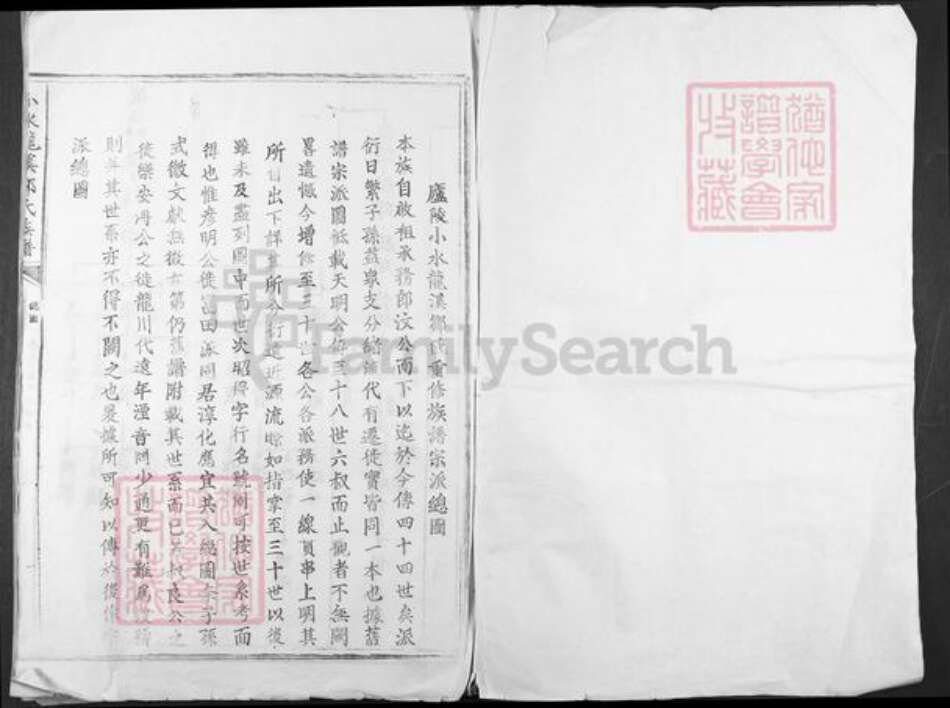 廬陵小水龍溪鄒氏重修族譜宗派總圖
本族自啟祖承務郎汶公而下以迄於今傳四十四世矣派
衍日繁子孫蕃衆支分綿代有遷徙實皆同一本也據舊
譜宗派圖祗載天明公仔三十八世六叔而止觀者不無闕
畧遺憾今增修至三十世各公各派務使一線貫串上明其
所自出下詳其所分行遠近源流瞭如指掌至三十世以後
雖未及盡列圖中而世次昭穆字行名號則可按世系考而
得也惟彥明公徙富田派同居淳化應宜共入總圖子孫
式微文獻無徵第仍舊譜附載其世系而已良公之
徙樂安丹公之徙龍川代遠年湮音問少通更有難爲
則其世系亦不得不闕之也是據所可知以傳於後
派總圖
小水龍溪鄒氏族譜
總圖
FamilySearch
譜學會
收藏